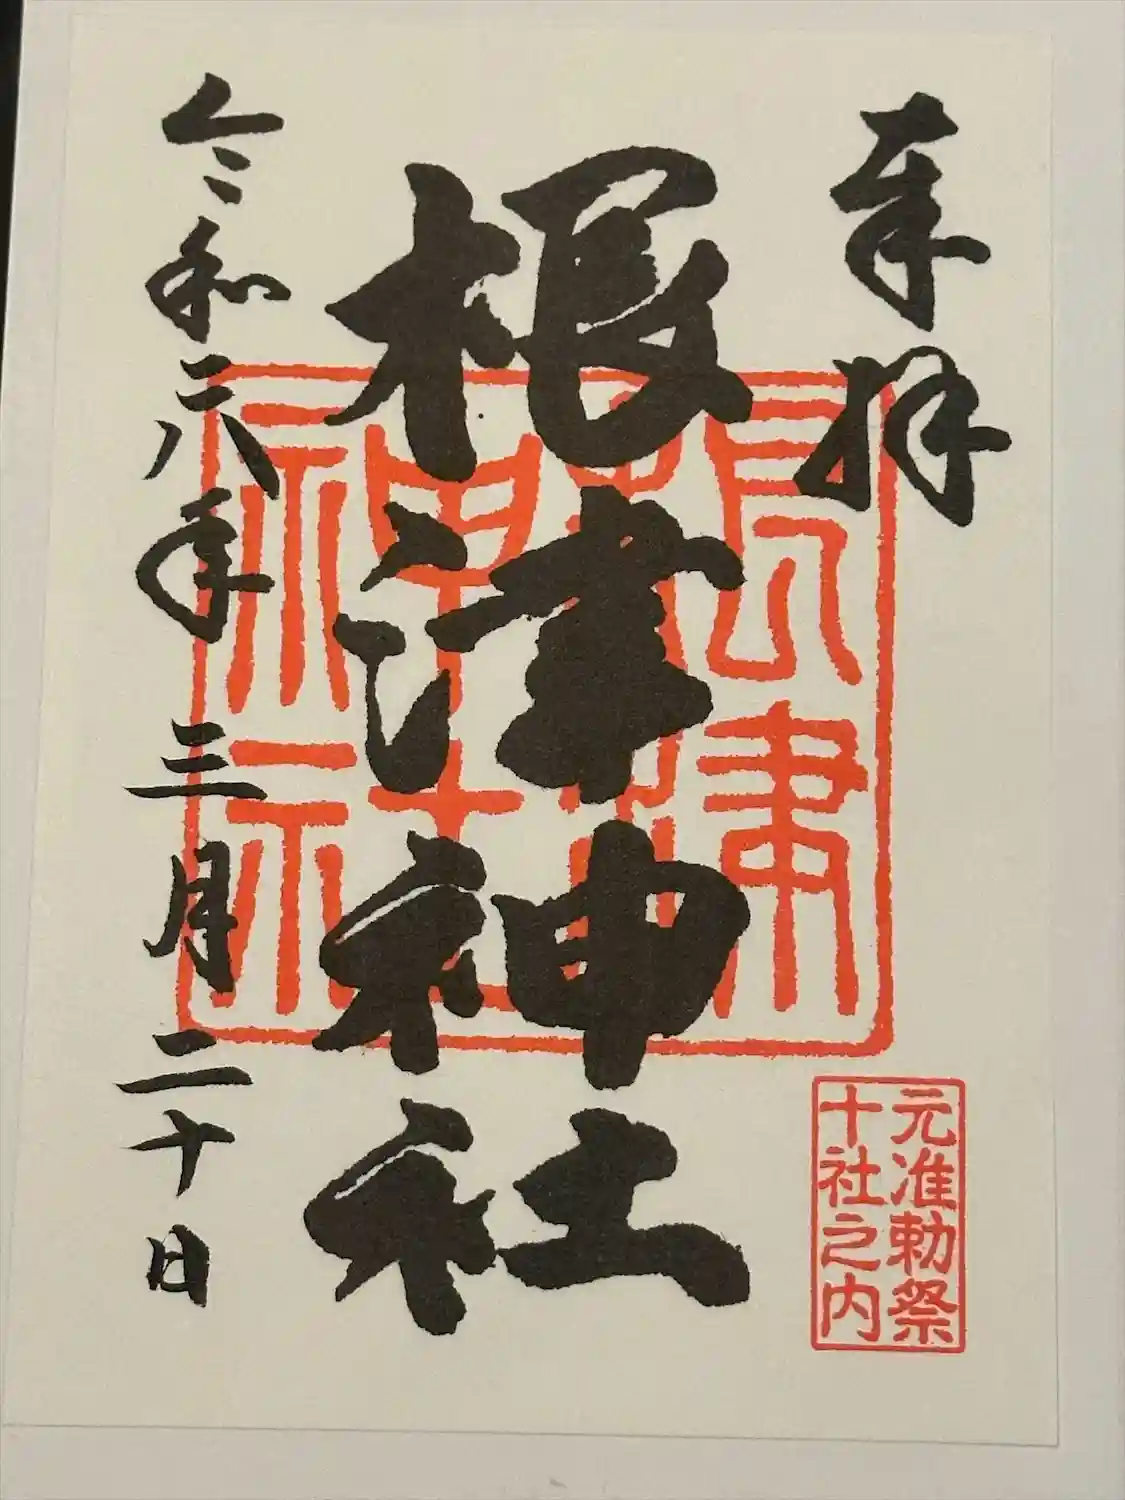 奉拝
根津神社
令和六年三月二十日
根津
神社
元准勅祭
十社之内